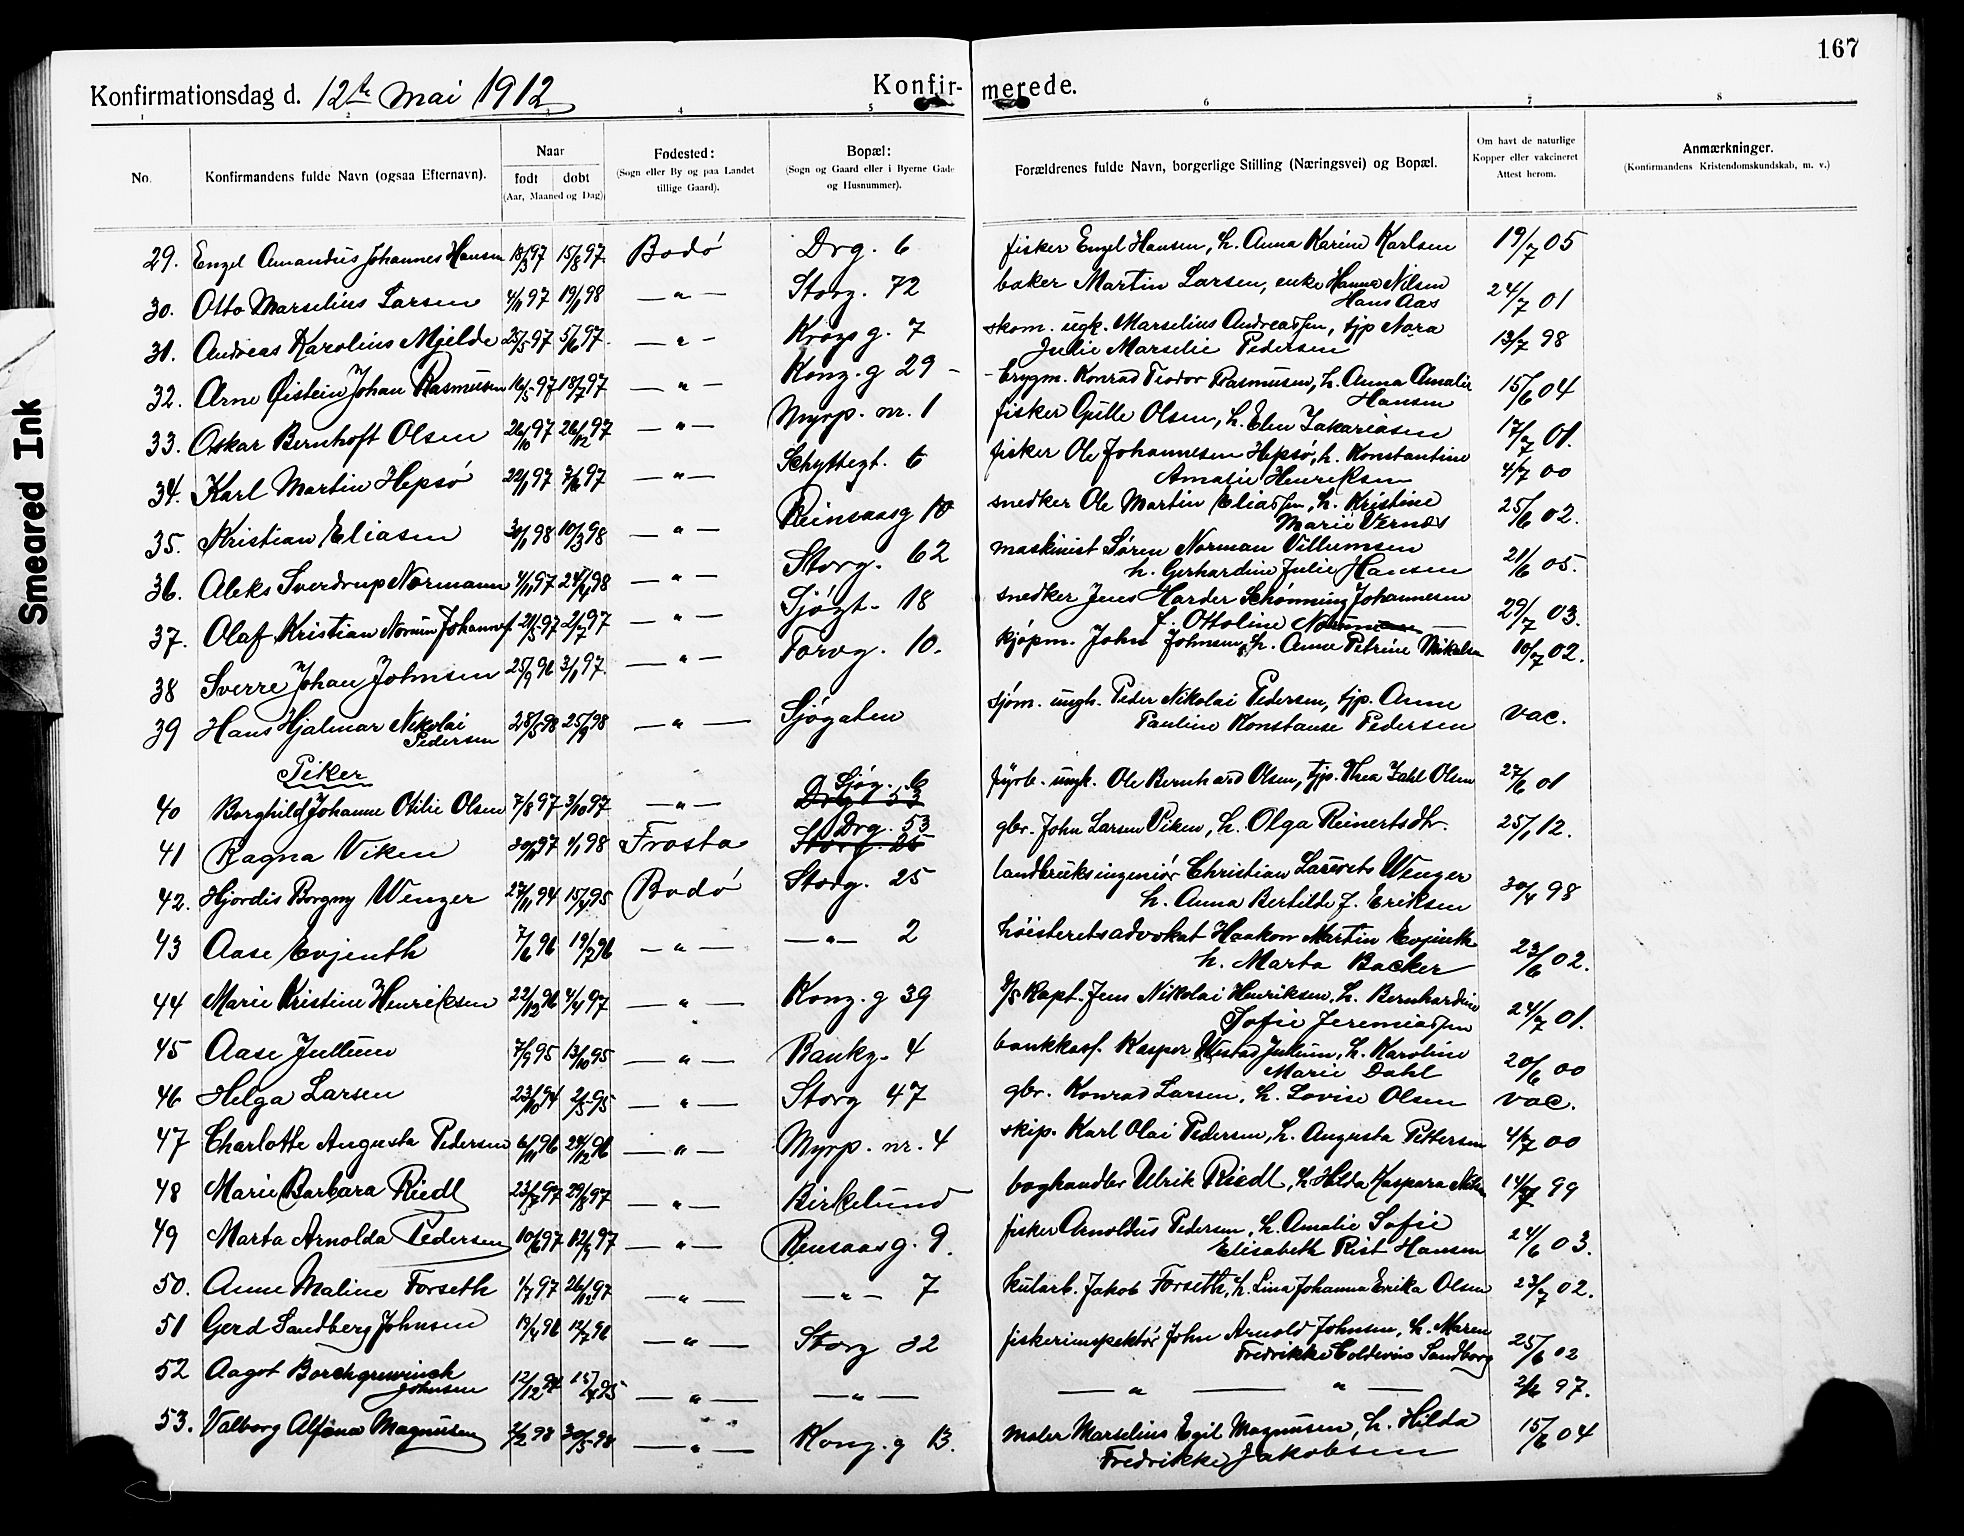 167
Konfirmationsdag d. 12te mai 1912
Konfir- merede.
1 2 3 4 5 6 7 8
No. Konfirmandens fulde Navn (ogsaa Efternavn). Naar født døbt (Aar, Maaned og Dag) Fødested: (Sogn eller By og paa Landet tillige Gaard). Bopæl: (Sogn og Gaard eller i Byerne Gade og Husnummer). Forældrenes fulde Navn, borgerlige Stilling (Næringsvei) og Bopæl. Om havt de naturlige Kopper eller vakcineret Attest herom. Anmærkninger. (Konfirmandens Kristendomskundskab, m. v.)
29. Engel Amandus Johannes Hansen 18/3 97 15/8 97. Bodø Drg. 6 fisker Engel Hansen, h. Anna Karine Karlsen 19/7 05
30. Otto Marselius Larsen 4/11 97 19/1 98 — " — Storg. 72 baker Martin Larsen, enke Hanna Nilsen Hans Aas 24/7 01
31. Andreas Karolius Mjelde 25/5 97 5/6 97. — " — Krogs g. 7 skom. ugk. Marselius Andreassen, tjp Nora Julie Marselie Pedersen 13/7 98
32. Arne Øistein Johan Rasmussen 16/5 97 18/7 97 — " — Kong. g 29 - brygm. Konrad Teodor Rasmussen, h. Anna Amalie Hansen 15/6 04
33. Oskar Bernhoft Olsen 26/10 97 26/12 97 — " — Myrp. nr. 1 fisker Olsen, h. Elen Zakariasen 17/7 01.
34. Karl Martin Hepsø 22/1 97 7/6 97 — " — Schyttegt. 6 fisker Ole Johannesen Hepsø, h. Konstantine Amalie Henriksen 4/7 00
35. Kristian Eliasen 30/1 98 10/3 98 — " — Reinsaasg 10 snedker Ole Martin Eliassen, h. Kristine Marie Vernes 25/6 02.
36. Aleks Sverdrup Normann 4/11 97 24/4 98 — " — Storg. 62 maskinist Søren Norman Villumsen h. Gerhardine Julie Hansen 21/6 05.
37. Olaf Kristian Johannes. 21/5 97 2/7 97 — " — Sjøgt. 18 snedker Jens Harder Schønning Johannesen f. Ottoline 29/7 03.
38 Sverre Johan Johnsen 25/9 96 3/1 97. — " — Torvg. 10. kjøpm. John Johnsen, h. Anna Petrine Mikalsen 10/7 02.
39 Hans Hjalmar Nikolai Pedersen 28/5 98 25/9 98 — " — Sjøgaten sjøm. ungk. Peder Nikolai Pedersen, tjp. Anne Pauline Konstanse Pedersen vac.
Piker
40 Borghild Johanne Otilie Olsen 7/8 97 3/10 97 — " — Sjøg. 6 Drg 53 fyrb. ungk. Ole Bernhard Olsen, tjp. Thea Zahl Olsen 27/6 01
41 Ragna Viken 30/11 97 1/1 98 Frosta Drg. 53 Storg. 25 gbr. John Larsen Viken, h. Olga Reinertsdtr. 25/1 12.
42. Hjørdis Borgny Wenger 27/11 94 15/4 95 Bodø Storg. 25 landbruksingeniør Christian Laurets Wenger h. Anna Bertilde f. Eriksen 30/4 98
43 Aase Evjenth 7/6 96 19/7 96 — " — — " — 2 høiesteretsadvokat Haakon Martin Evjenth h. Marta Backer 23/6 02.
44 Marie Kristine Henriksen 22/12 96 4/4 97 — " — Kong. g 39 D/S Kapt. Jens Nikolai Henriksen, h. Bernhardine Sofie Jeremiassen 24/7 01.
45 Aase Jullum 7/9 95 13/10 95 — " — Bankg. 4 bankkass. Kasper Wistad Jullum, h. Karoline Marie Dahl 20/6 00
46 Helga Larsen 23/10 94 2/5 95 — " — Storg 47 gbr. Konrad Larsen, h. Lovise Olsen vac.
47 Charlotte Augusta Pedersen 6/11 96 24/12 96 — " — Myrp. nr. 4 skip. Karl Olai Pedersen, h. Augusta Pettersen 4/7 00
48 Marie Barbara Riedl 23/5 97 29/8 97 — " — Birkelund boghandler Ulrik Riedl, h. Hilda Kaspara Nilsen 14/7 99
49 Marta Arnolda Pedersen 10/6 97 12/9 97 — " — Rensaasg. 9. fisker Arnoldus Pedersen, h. Amalie Sofie Elisabeth Rist Hansen 24/6 03.
50. Anne Maline Forseth 1/7 97 26/12 97 — " — — " — 7 kularb. Jakob Forseth, h. Lina Johanna Erika Olsen 23/7 02.
51 Gerd Sandberg Johnsen 19/4 96 12/7 96 — " — Storg 32 fiskeriinspektør John Arnold Johnsen, h. Maren Fredrikke Coldevin Sandberg 25/6 02
52 Aagot Borchgrewinch Johnsen 12/12 94 15/4 95 — " — — " — — " — " — 2/6 97.
53. Valborg Alfona Magnusen 2/2 98 30/5 98 — " — Kong. g 13. maler Marselius Egil Magnussen, h. Hilda Fredrikke Jakobsen 15/6 04
Smeared Ink